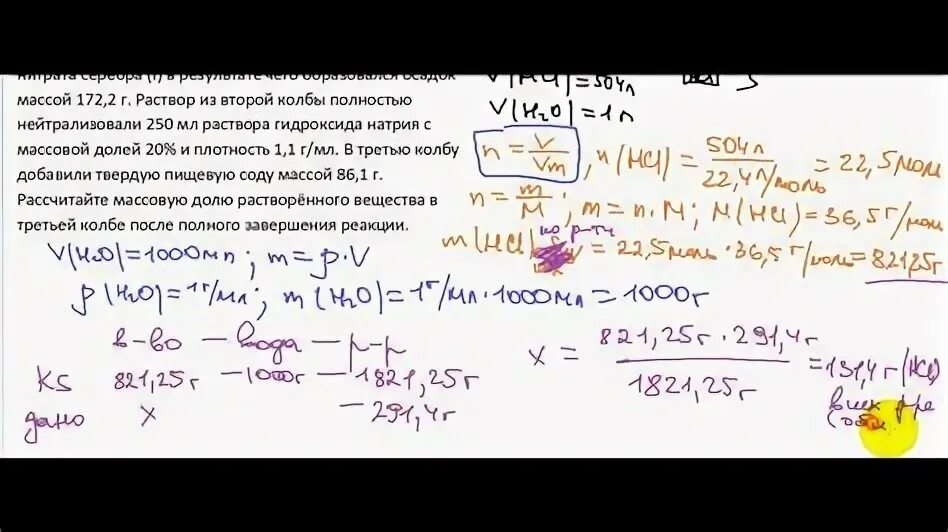 нитрата серебра (I) в результате чего образовался осадок
массой 172,2 г. Раствор из второй колбы полностью
нейтрализовали 250 мл раствора гидроксида натрия с
массовой долей 20% и плотность 1,1 г/мл. В третью колбу
добавили твердую пищевую соду массой 86,1 г.
Рассчитайте массовую долю растворённого вещества в
третьей колбе после полного завершения реакции.
V(HCl)=504л
V(H₂O)=1л
n = V/Vm , n(HCl) = 504л / 22,4л/моль = 22,5моль
n = m/M ; m = n·M; M(HCl) = 36,5г/моль
m(HCl) = 22,5моль · 36,5г/моль = 821,25г
V(H₂O)=1000мл ; m = ρ·V
ρ(H₂O) = 1г/мл; m(H₂O) = 1г/мл·1000мл = 1000г
в-во — вода — р-р
KS 821,25г — 1000г — 1821,25г
дано x — 291,4г
x = 821,25г · 291,4г / 1821,25г = 131,4г (HCl)